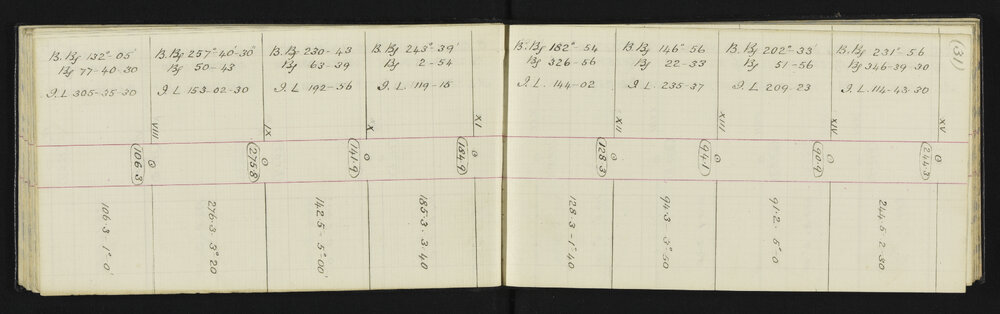 B. Bg 132°-05'
Bg 77-40-30
I. L. 305-35-30
B. Bg 257°-40'-30"
Bg 50-43
I. L. 153-02-30
B. Bg 230-43
Bg 63-39
I. L. 192-56
B. Bg 243°-39'
Bg 2-54
I. L. 119-15
B. Bg 182°-54
Bg 326-56
I. L. 144-02
B. Bg 146°-56
Bg 22-33
I. L. 235-37
B. Bg 202°-33'
Bg 51-56
I. L. 209-23
B. Bg 231°-56
Bg 346-39-30
I. L. 114-43-30
(31)
VIII
IX
X
XI
XII
XIII
XIV
XV
106.3
275.8
141.9
184.9
128.3
94.1
90.9
244.3
106.3 1°0'
276.3. 3°20
142.5 - 5°00'
185.3. 3 40
128.3 - 1°40
94.3 - 3°50
91.2. 5°0
244.5 2-30